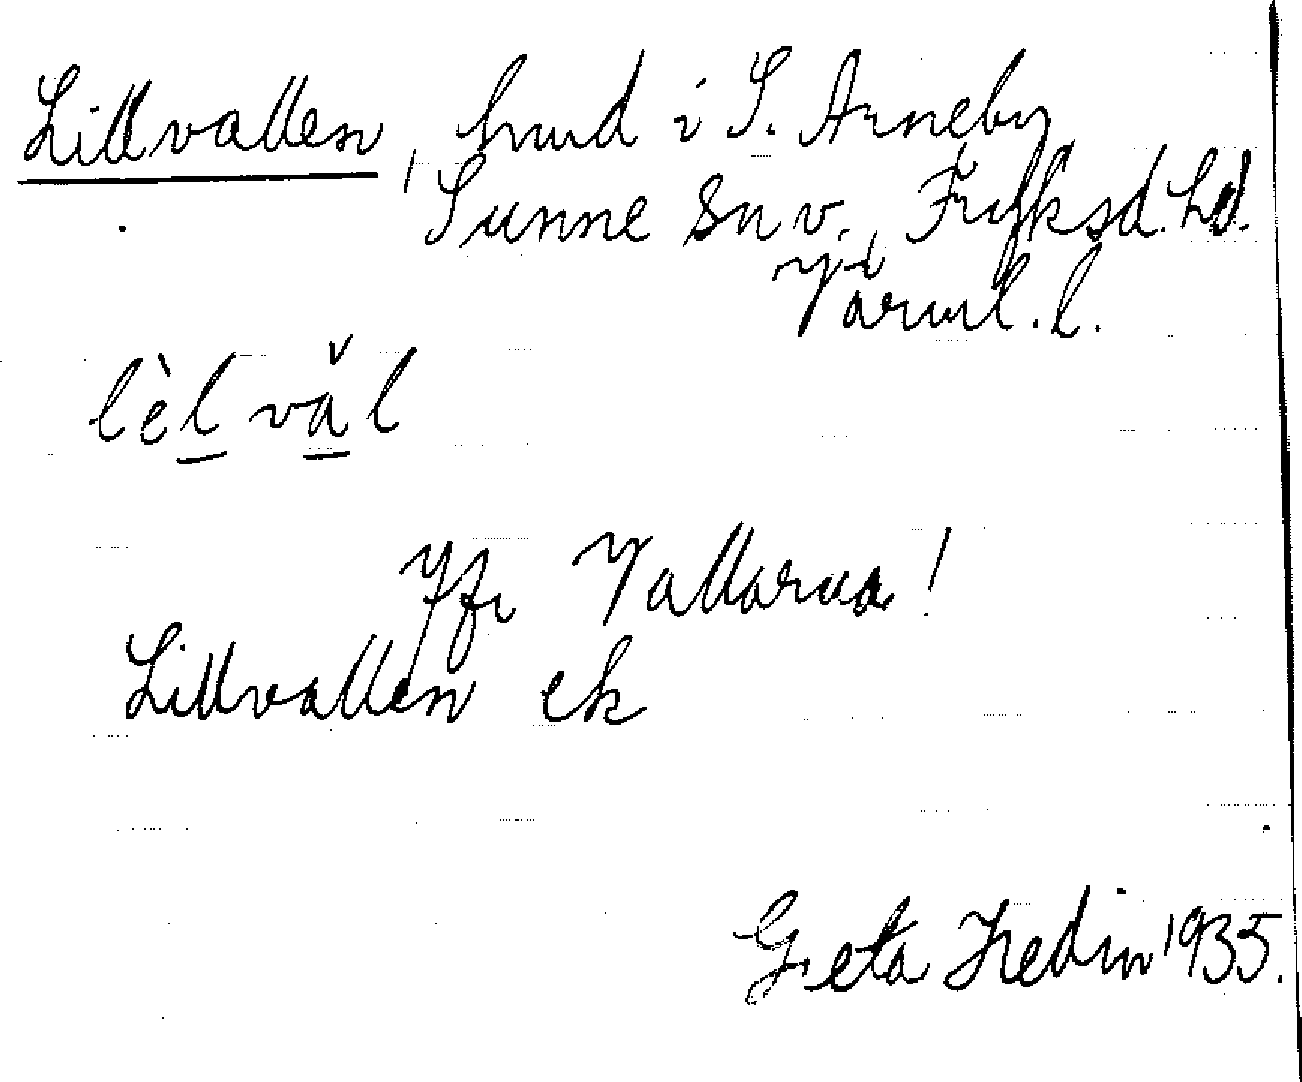 Lillvallen, hmd i S. Arneby
Sunne sn v., Fryksd. hd.
Värml. l.
lèl văl
Jfr Vallarna!
Lillvallen ek
Greta Hedin 1935.